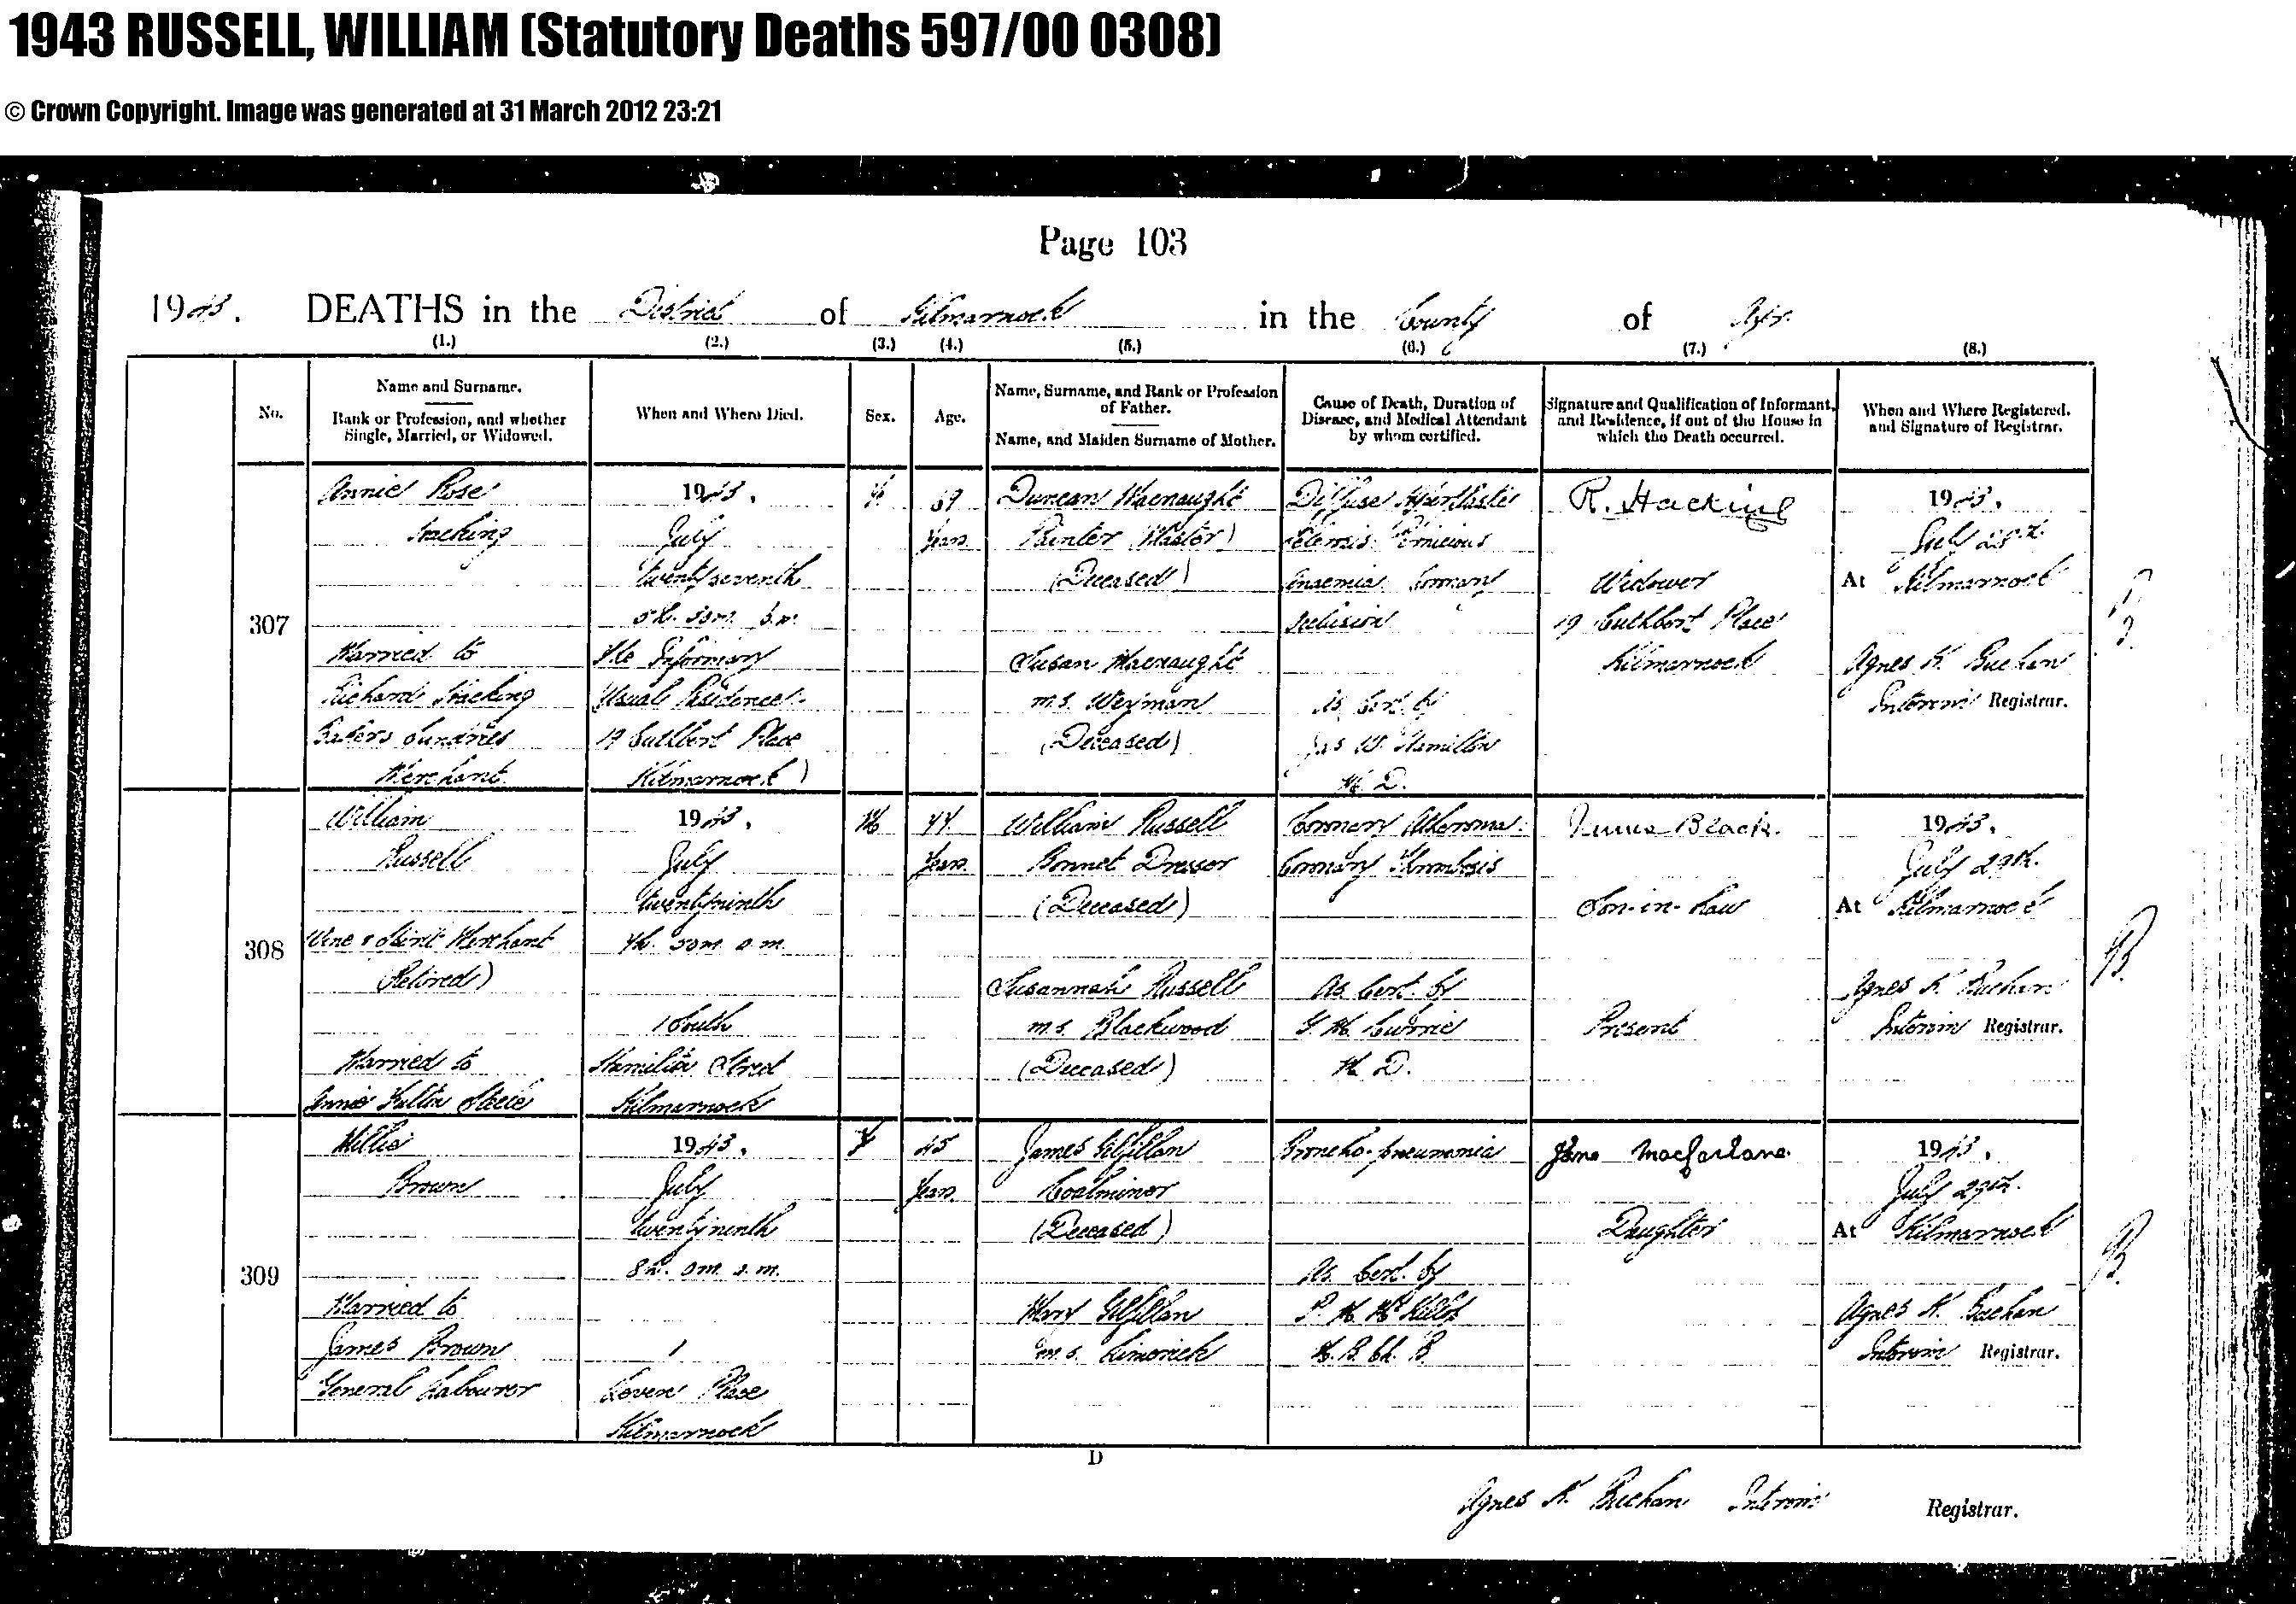 1943 RUSSELL, WILLIAM (Statutory Deaths 597/00 0308)
© Crown Copyright. Image was generated at 31 March 2012 23:21
Page 103
1943. DEATHS in the District of Kilmarnock in the County of Ayr.
(1.) (2.) (3.) (4.) (5.) (6.) (7.) (8.)
No.
Name and Surname.
Rank or Profession, and whether
Single, Married, or Widowed.
When and Where Died.
Sex.
Age.
Name, Surname, and Rank or Profession
of Father.
Name, and Maiden Surname of Mother.
Cause of Death, Duration of
Disease, and Medical Attendant
by whom certified.
Signature and Qualification of Informant,
and Residence, if out of the House in
which the Death occurred.
When and Where Registered,
and Signature of Registrar.
307
Annie Rose
Hacking
Married to
Richard Hacking
Bakers Sundries
Merchant
1943.
July
twenty seventh
5h. 30m. p.m.
The Infirmary
Usual Residence:-
19 Cuthbert Place
Kilmarnock)
F
69
Years
Duncan Macnaught
Painter (Master)
(Deceased)
Susan Macnaught
m.s. Weyman
(Deceased)
Diffuse
Pernicious
Anaemia. Coronary
As Cert. by
Jas W. Hamilton
M. D.
R. Hacking
Widower
19 Cuthbert Place
Kilmarnock
1943.
July 28th
At Kilmarnock
Agnes K. Buchan
Interim Registrar.
308
William
Russell
Wine & Spirit Merchant
(Retired)
Married to
Annie Fulton Steele
1943.
July
twenty ninth
4h. 50m. a.m.
1 South
Hamilton Street
Kilmarnock
M
77
Years
William Russell
Bonnet Dresser
(Deceased)
Susannah Russell
m.s. Blackwood
(Deceased)
Coronary Atheroma.
Coronary Thrombosis
As Cert. by
M. Currie
M. D.
Black.
Son-in-Law
Present
1943.
July 29th.
At Kilmarnock
Agnes K. Buchan
Interim Registrar.
309
Millie
Brown
Married to
James Brown
General Labourer
1943.
July
twenty ninth
8h. 0m. a.m.
1
Leven Place
Kilmarnock
F
45
Years
James Gilfillan
Coalminer
(Deceased)
Mary Gilfillan
m.s. Limerick
Broncho-pneumonia
As Cert. by
M. B. Ch. B.
Jane Macfarlane.
Daughter
1943.
July 29th.
At Kilmarnock
Agnes K. Buchan
Interim Registrar.
D
Agnes K. Buchan Interim Registrar.